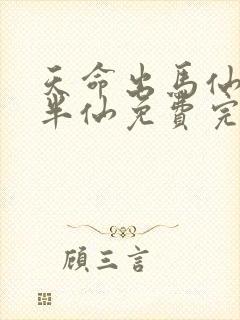 天命出馬仙
半仙免費完
顧三言